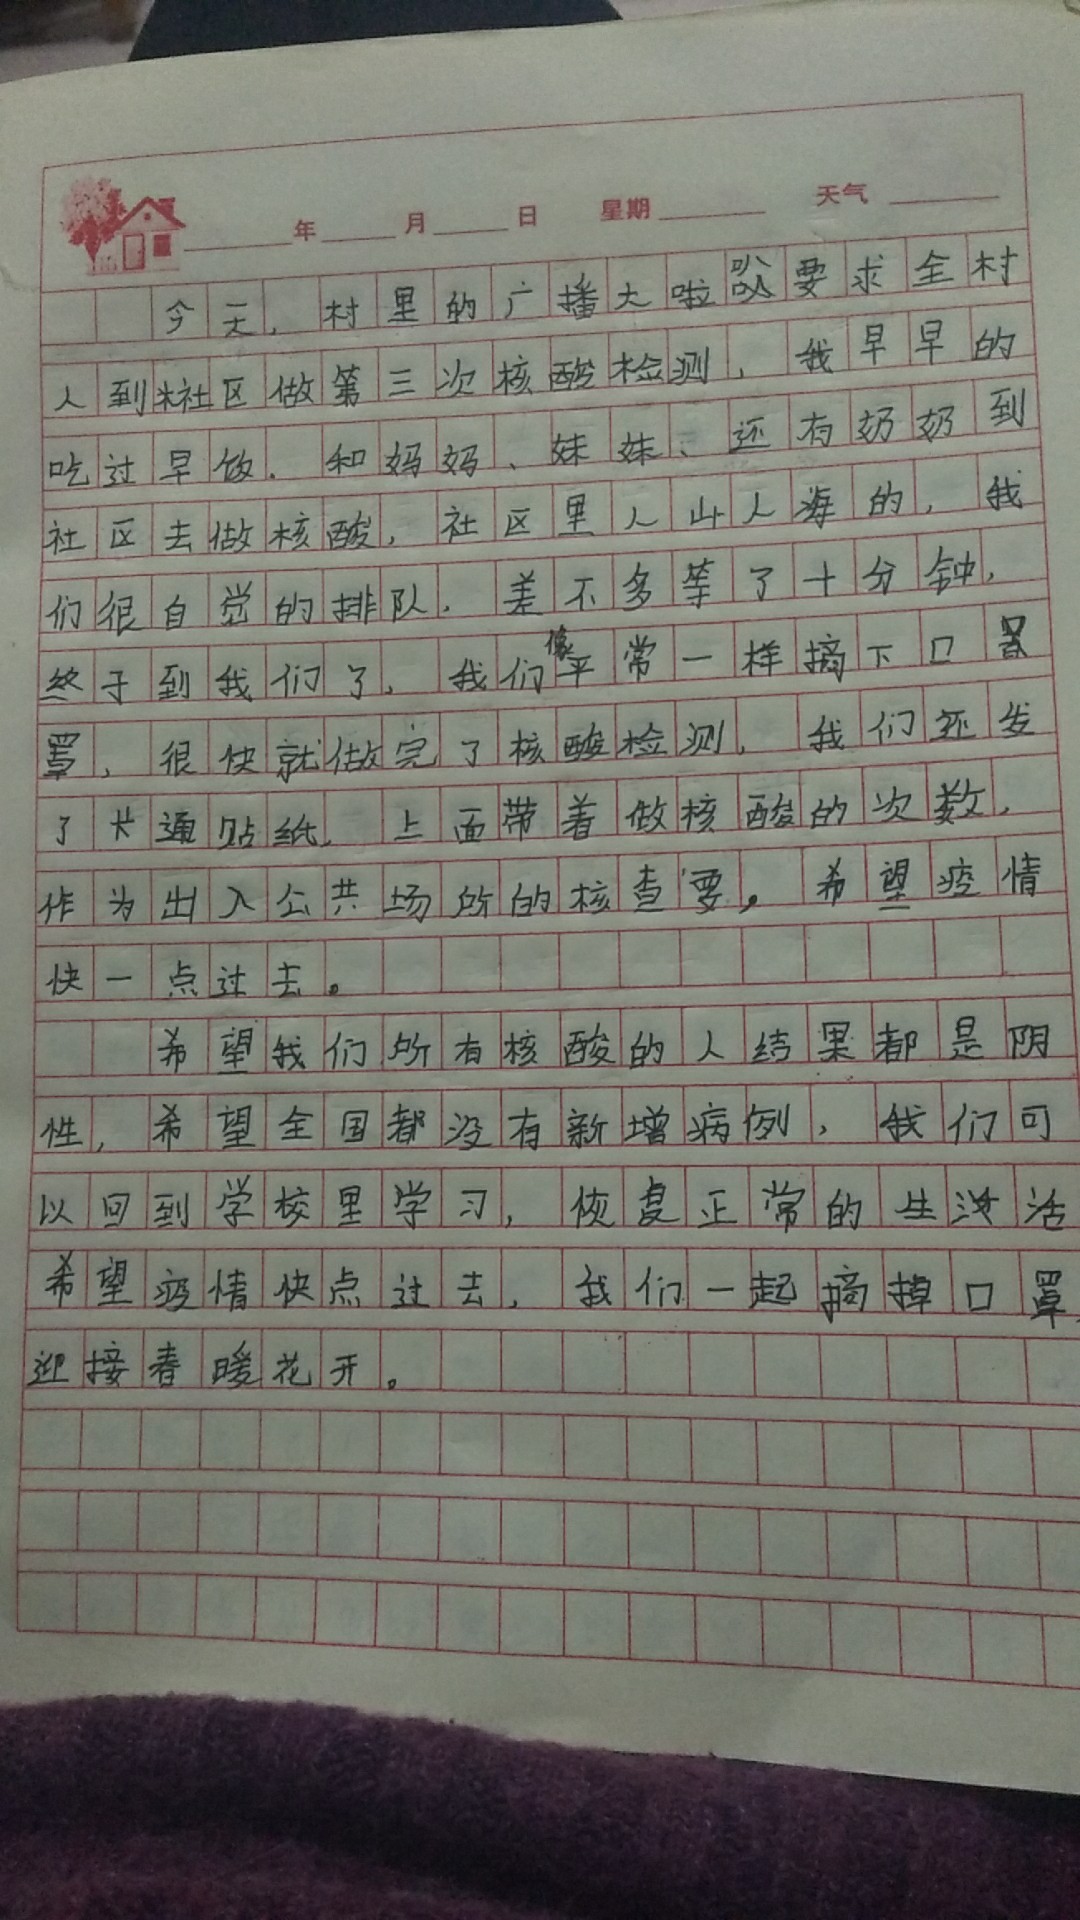 年 月 日 星期 天气
今天，村里的广播大啦叭要求全村
人到社区做第三次核酸检测，我早早的
吃过早饭．和妈妈、妹妹、还有奶奶到
社区去做核酸，社区里人山人海的，我
们很自觉的排队，差不多等了十分钟，
终于到我们了，我们像平常一样摘下口
罩，很快就做完了核酸检测，我们还发
了卡通贴纸，上面带着做核酸的次数，
作为出入公共场所的核查要，希望疫情
快一点过去。
希望我们所有核酸的人结果都是阴
性，希望全国都没有新增病例，我们可
以回到学校里学习，恢复正常的生活
希望疫情快点过去，我们一起摘掉口罩，
迎接春暖花开。